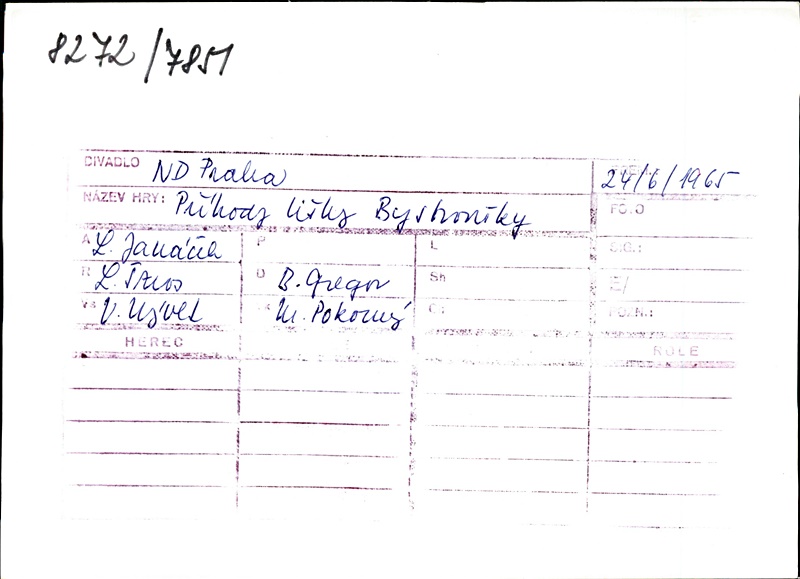 8272/7851
DIVADLO ND Praha 24/6/1965
NÁZEV HRY: Příhody lišky Bystroušky FO.O
A L. Janáček P L SIG.:
R L. Štros D B. Gregor Sh E/
V. Nývlt M. Pokorný C: POZN.:
HEREC ROLE